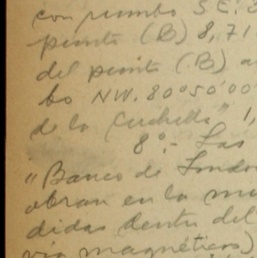 con rumbo S E: 8
punto (B) 8,71
del punto (B) a
bo NW. 80°50'00
de la Cuchilla" 1,
8°.- Las
"Banco de Londr
obran en la me
didas dentro del
vío magnético)